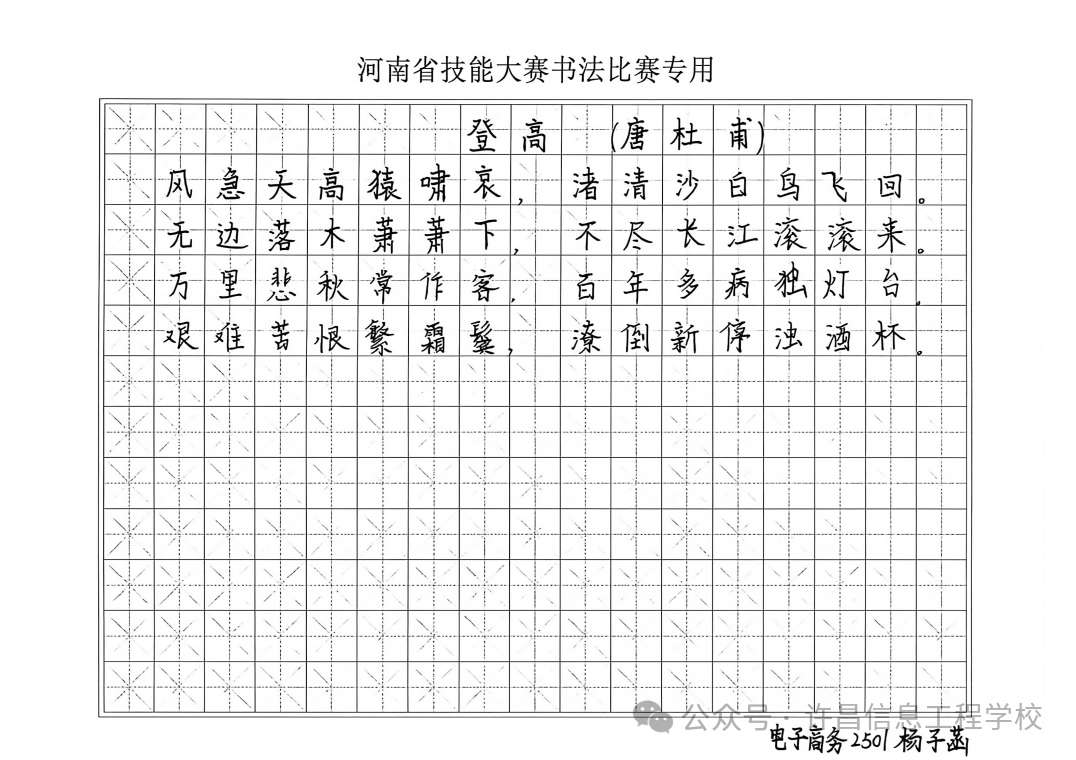 河南省技能大赛书法比赛专用
登高 (唐 杜甫)
风急天高猿啸哀，渚清沙白鸟飞回。
无边落木萧萧下，不尽长江滚滚来。
万里悲秋常作客，百年多病独灯台。
艰难苦恨繁霜鬓，潦倒新停浊酒杯。
公众号·许昌信息工程学校
电子商务2501 杨子菡